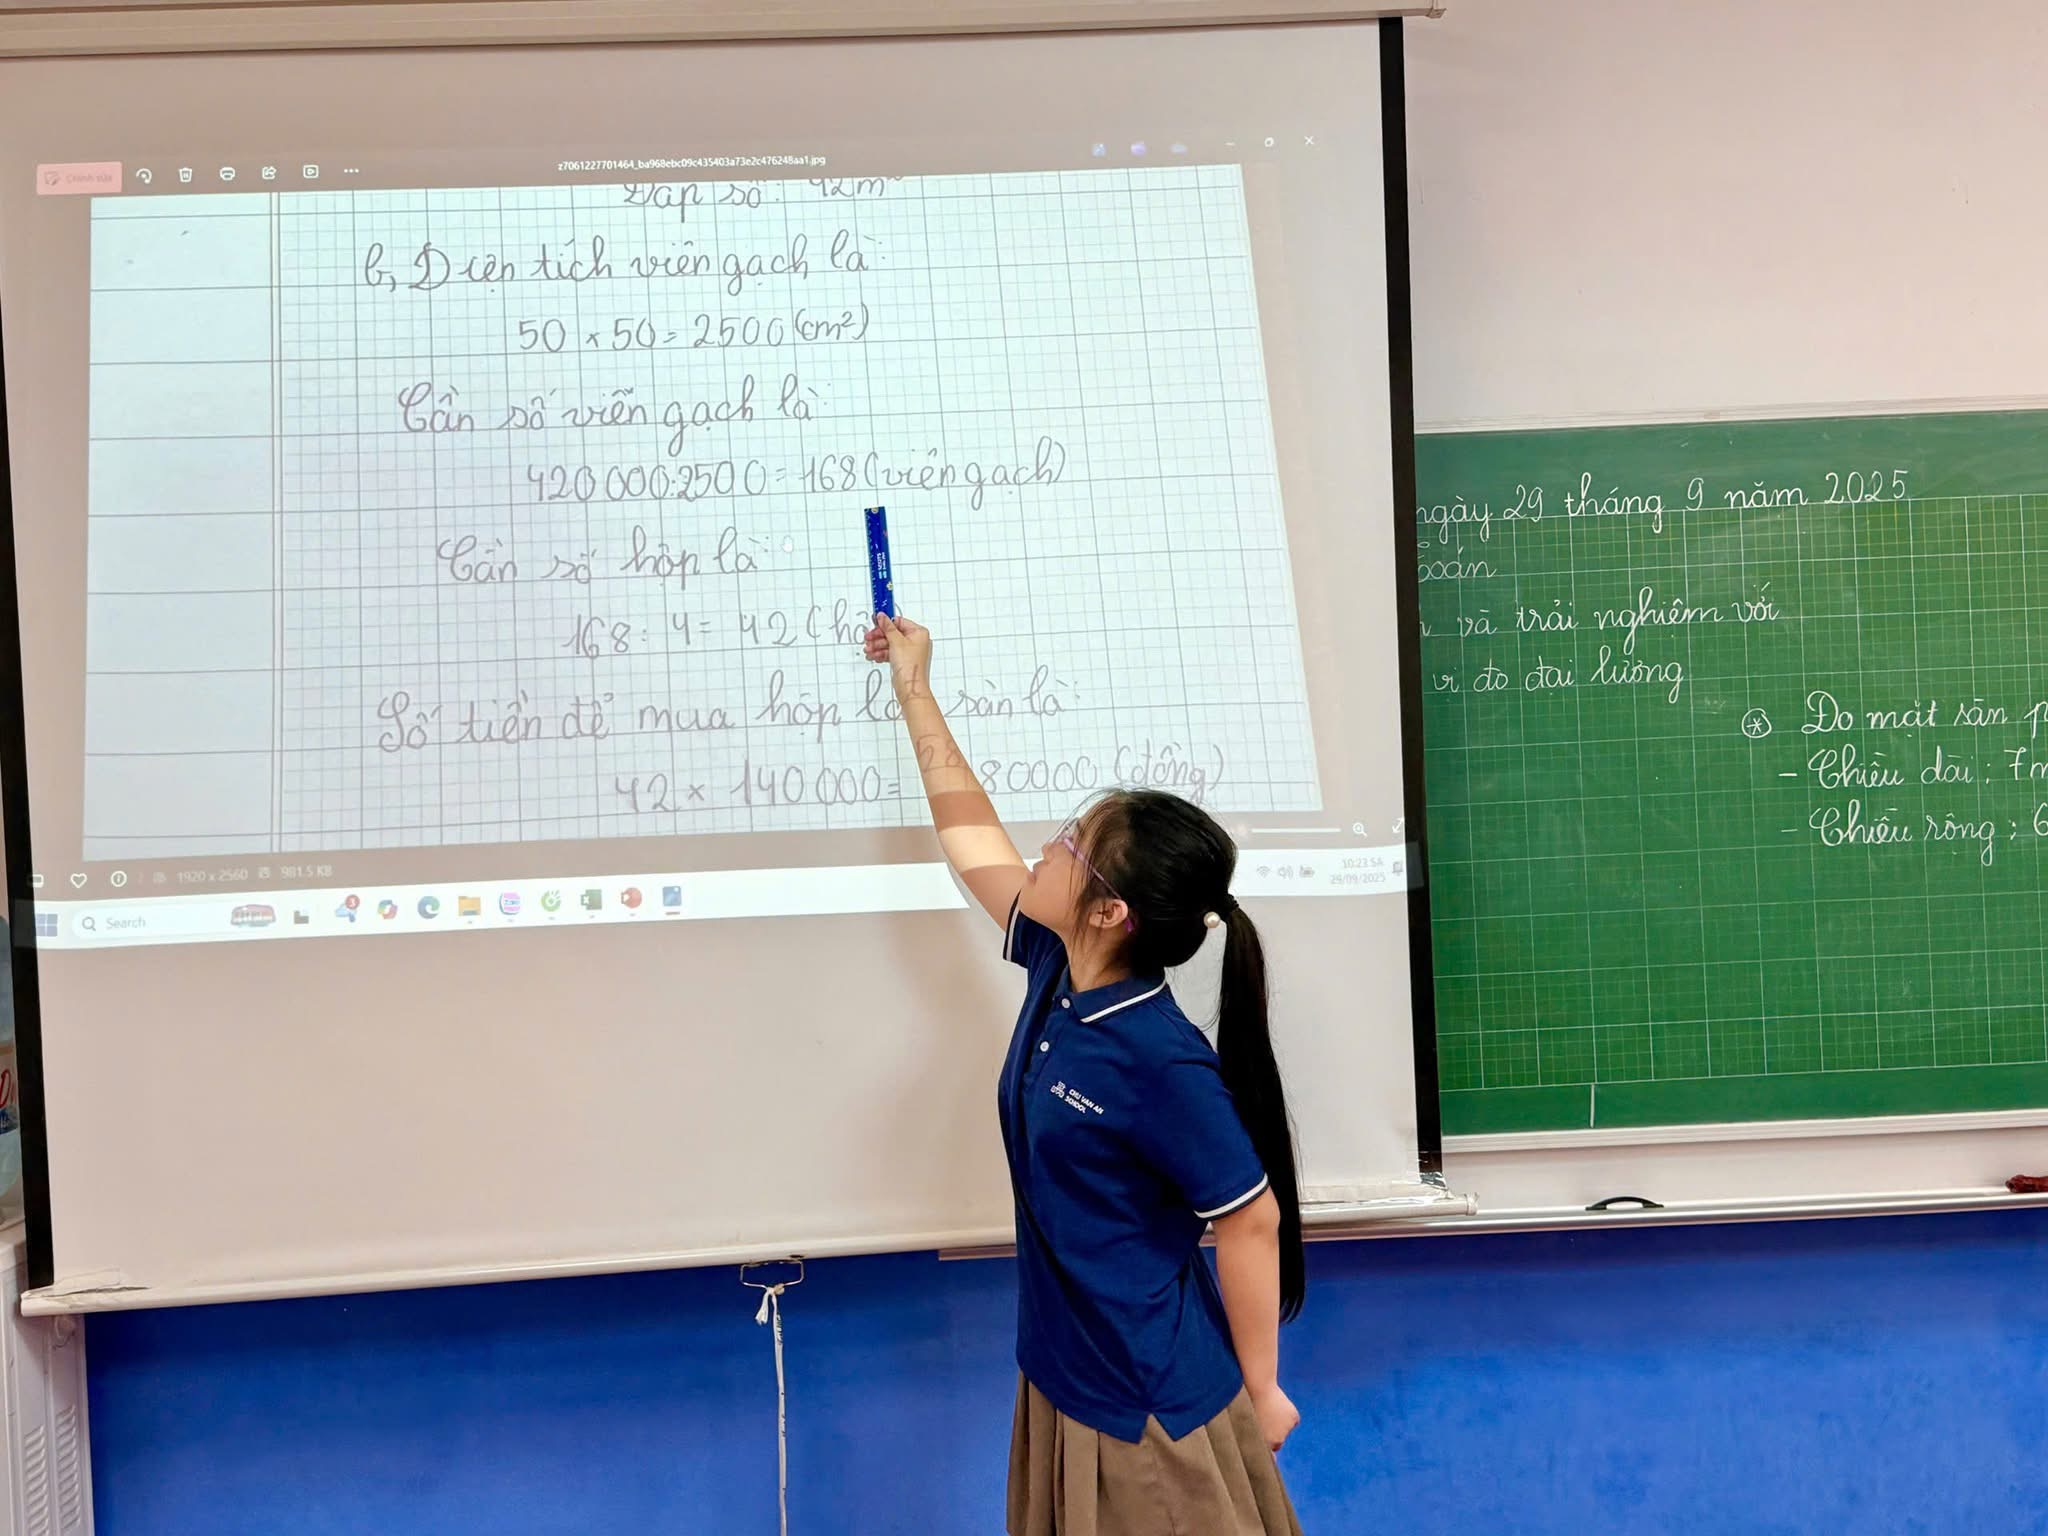 Chỉnh sửa
z7061227701464_ba968ebc09c435403a73e2c476248aa1.jpg
Đáp số: 42m²
b, Diện tích viên gạch là:
50 × 50 = 2500 (cm²)
Cần số viên gạch là:
420 000 : 2500 = 168 (viên gạch)
Cần số hộp là:
168 : 4 = 42 (hộ
Số tiền để mua hộp lát sàn là:
42 × 140 000 = 58 80000 (đồng)
1920 x 2560 981.5 KB
Search
10:23 SA
29/09/2025
ngày 29 tháng 9 năm 2025
oán
và trải nghiệm với
vị đo đại lượng
Đo mặt sân p
- Chiều dài: 7m
- Chiều rộng: 6
CHU VAN AN
SCHOOL